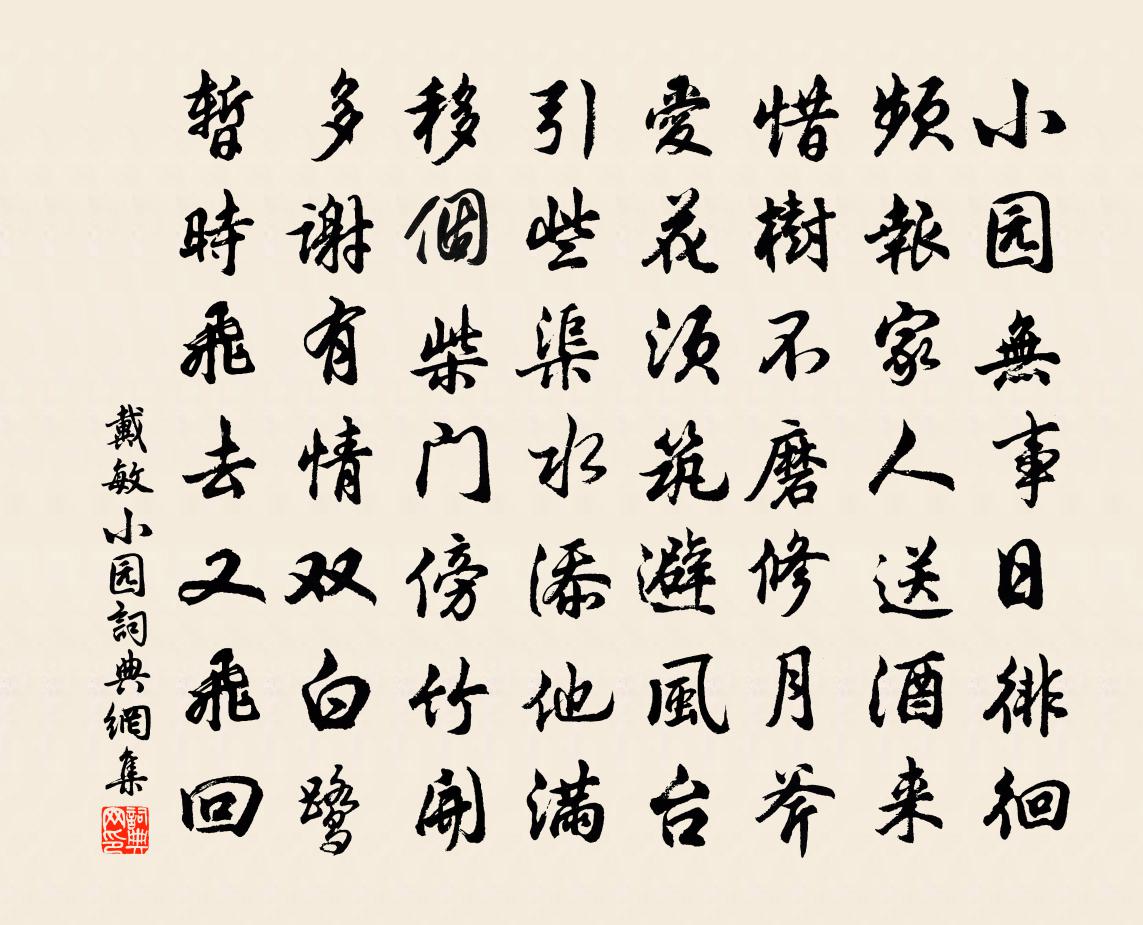 小园無事日徘徊
頻報家人送酒来
惜樹不磨修月斧
愛花须筑避風台
引些渠水添他满
移個柴门傍竹開
多謝有情双白鹭
暫時飛去又飛回
戴敏小园詞典網集
詞典网印